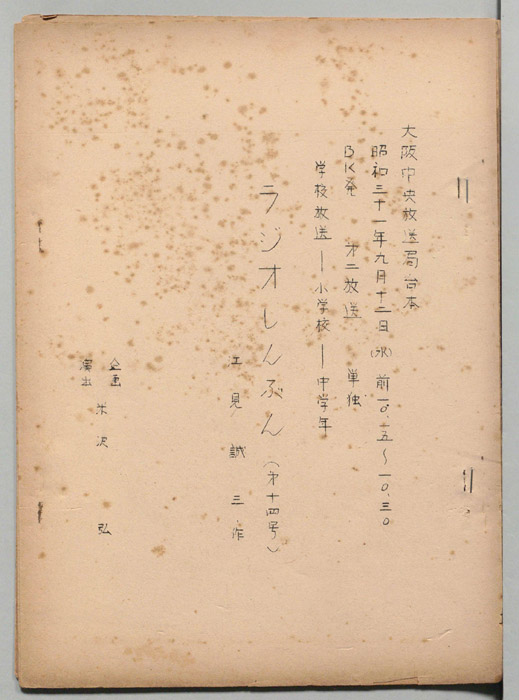 大阪中央放送局台本
昭和三十一年九月十二日(水)前一〇.一五～一〇.三〇
BK発 才二放送 単独
学校放送ー小学校ー中学年
ラジオしんぶん(才十四号)
江見誠三作
企画
演出
米沢弘